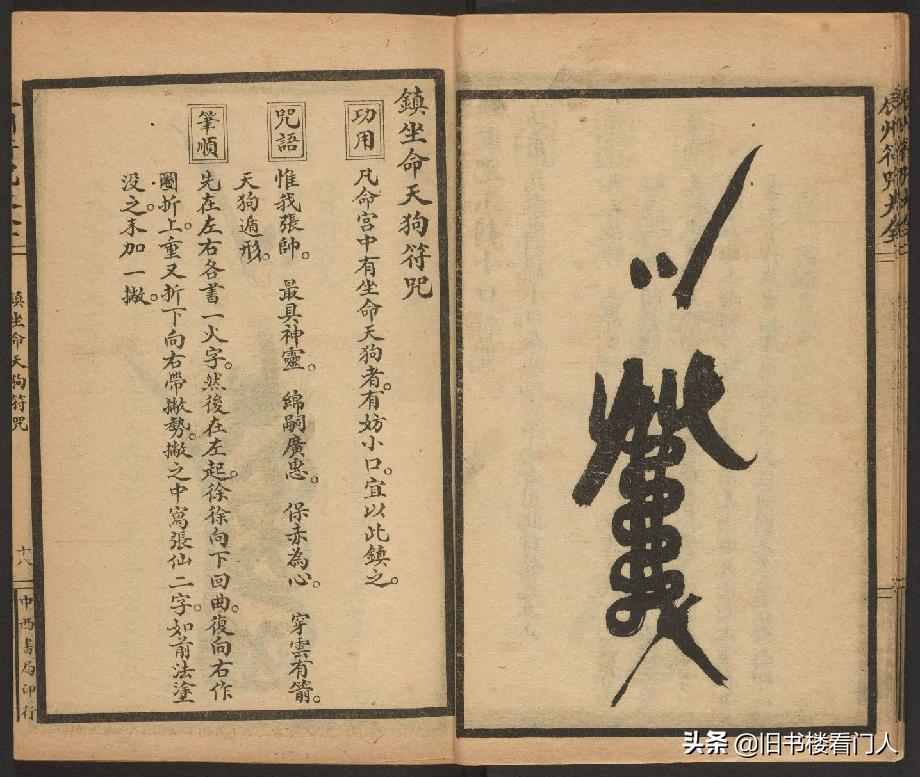 辰州符咒大全
鎮坐命天狗符咒
功用
凡命宮中有坐命天狗者。有妨小口。宜以此鎮之。
咒語
惟我張帥。 最具神靈。 綿嗣廣惠。 保赤為心。 穿雲有箭。
天狗遁形。
筆順
先在左右各書一火字。然後在左起。徐徐向下回曲。復向右作
圈折上。重又折下向右帶撇勢。撇之中寫張仙二字。如前法塗
没之。末加一撇。
鎮坐命天狗符咒
十八
中西書局印行
头条 @旧书楼看门人